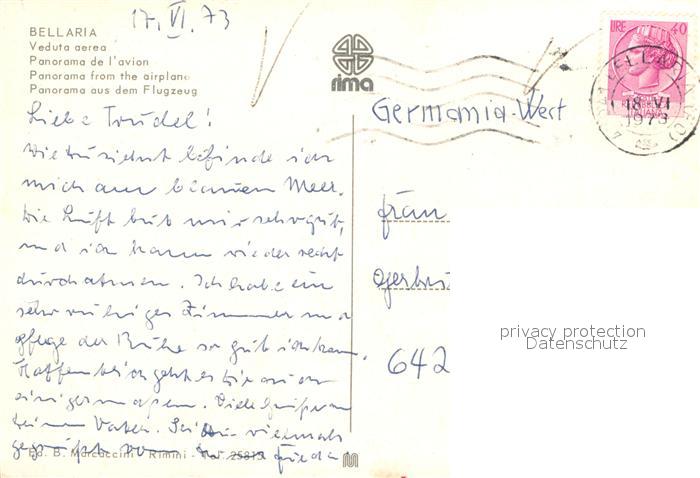 17. VI. 73
BELLARIA
Veduta aerea
Panorama de l'avion
Panorama from the airplane
Panorama aus dem Flugzeug
rima
LIRE 40
18 VI
1973
Germania-West
Liebe Trudel!
Wie Du siehst befinde ich
mich am blauen Meer.
Die Luft tut mir sehr gut,
und ich kann wieder recht
durchatmen. Ich habe ein
sehr ruhiges Zimmer und
pflege der Ruhe so gut ich kann.
Hoffentlich geht es Dir auch
einigermaßen. Viele Grüße von
Deinem Vater. Sei vielmals
gegrüßt von
Frau
642
privacy protection
Datenschutz
Ed. B. Marcaccini - Rimini -